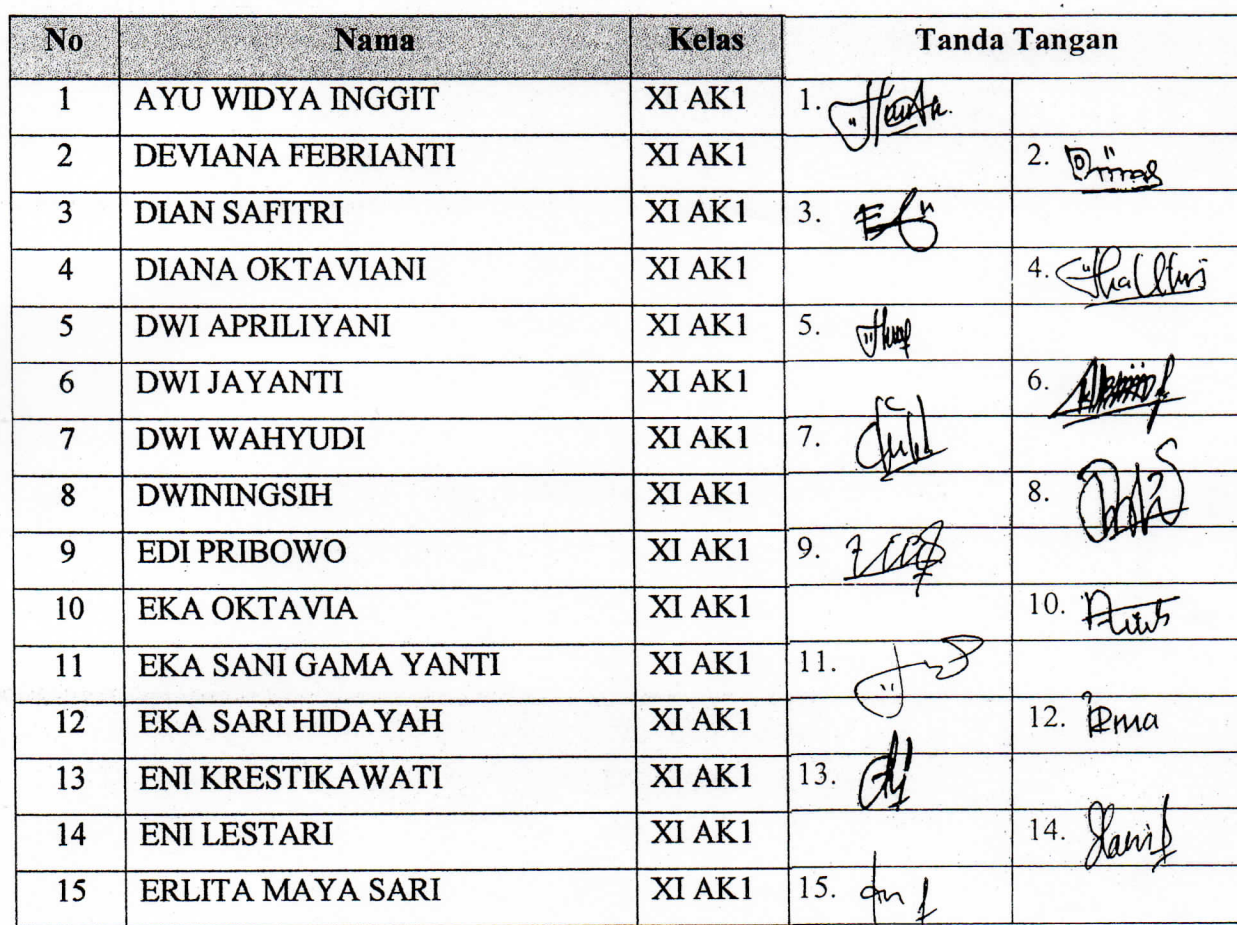 No Nama Kelas Tanda Tangan
1 AYU WIDYA INGGIT XI AK1 1.
2 DEVIANA FEBRIANTI XI AK1 2.
3 DIAN SAFITRI XI AK1 3.
4 DIANA OKTAVIANI XI AK1 4.
5 DWI APRILIYANI XI AK1 5.
6 DWI JAYANTI XI AK1 6.
7 DWI WAHYUDI XI AK1 7.
8 DWININGSIH XI AK1 8.
9 EDI PRIBOWO XI AK1 9.
10 EKA OKTAVIA XI AK1 10.
11 EKA SANI GAMA YANTI XI AK1 11.
12 EKA SARI HIDAYAH XI AK1 12.
13 ENI KRESTIKAWATI XI AK1 13.
14 ENI LESTARI XI AK1 14.
15 ERLITA MAYA SARI XI AK1 15.